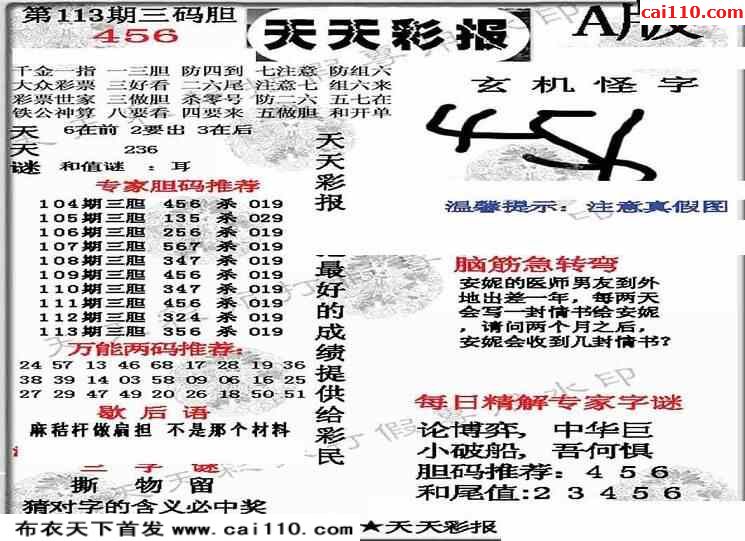 第113期三码胆
456
天天彩报
A版
cai110.com
千金一指 一三胆 防四到 七注意 防组六
大众彩票 三好看 二六尾 注意七 组六来
彩票世家 三做胆 杀零号 防二六 五七在
铁公神算 八要看 四要来 五做胆 和开单
天天谜
6在前 2要出 3在后
236
和值谜：耳
专家胆码推荐
104期三胆 456 杀 019
105期三胆 135 杀 029
106期三胆 256 杀 019
107期三胆 567 杀 019
108期三胆 347 杀 019
109期三胆 456 杀 019
110期三胆 347 杀 019
111期三胆 456 杀 019
112期三胆 324 杀 019
113期三胆 356 杀 019
万能两码推荐:
24 57 13 46 68 17 28 19 36
38 39 14 03 58 09 06 16 25
27 29 47 49 20 26 18 50 51
歇后语
麻秸杆做扁担 不是那个材料
三字谜
撕 物 留
猜对字的含义必中奖
天天彩报
最好的成绩提供给彩民
玄机怪字
温馨提示：注意真假图
脑筋急转弯
安妮的医师男友到外
地出差一年，每两天
会写一封情书给安妮
，请问两个月之后，
安妮会收到几封情书？
每日精解专家字谜
论博弈，中华巨
小破船，吾何惧
胆码推荐：４５６
和尾值:２３４５６
布衣天下首发 www.cai110.com ★天天彩报